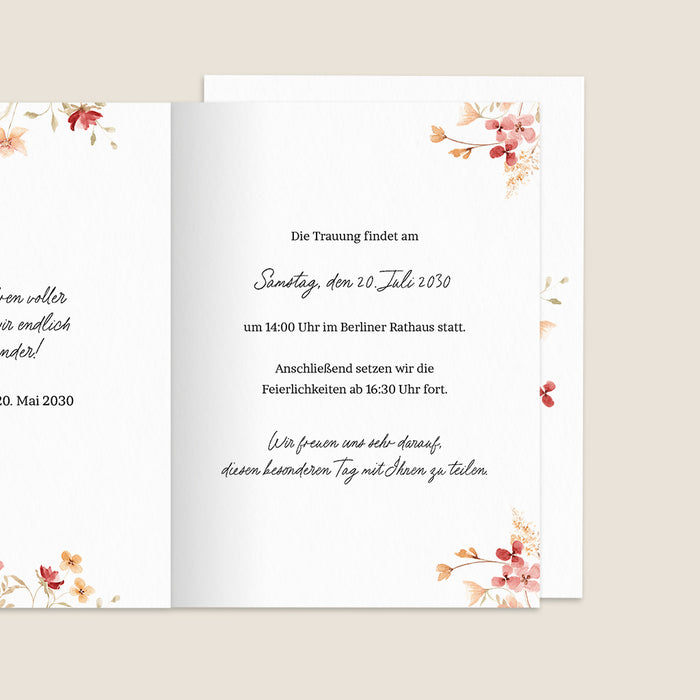 ren voller
wir endlich
nder!
20. Mai 2030
Die Trauung findet am
Samstag, den 20. Juli 2030
um 14:00 Uhr im Berliner Rathaus statt.
Anschließend setzen wir die
Feierlichkeiten ab 16:30 Uhr fort.
Wir freuen uns sehr darauf,
diesen besonderen Tag mit Ihnen zu teilen.